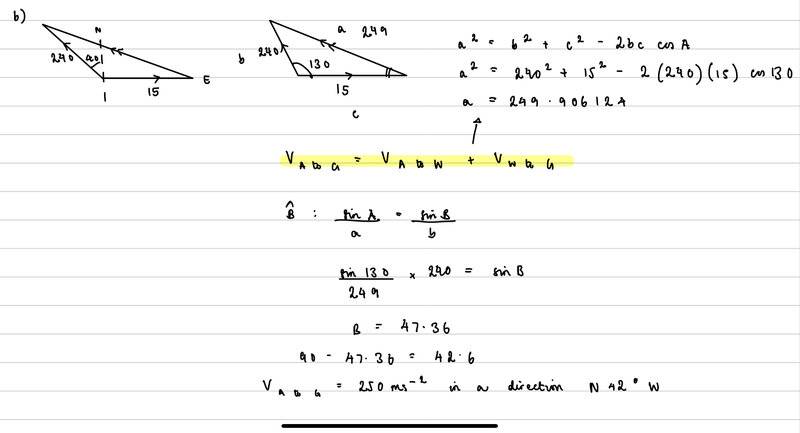 b)
N
240 40
15 E
a 249
b 240 130
15
c
a² = b² + c² - 2bc cos A
a² = 240² + 15² - 2 (240)(15) cos 130
a = 249.906124
V A to G = V A to W + V W to G
B̂ : sin A / a = sin B / b
sin 130 / 249 × 240 = sin B
B = 47.36
90 - 47.36 = 42.6
V A to G = 250 ms⁻² in a direction N 42° W